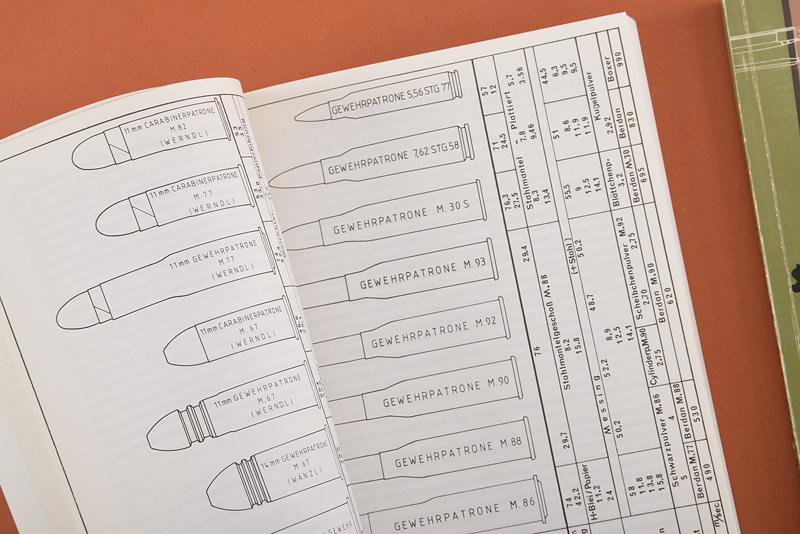 11mm CARABINERPATRONE
M.82
(WERNDL)
11mm CARABINERPATRONE
M.77
(WERNDL)
11mm GEWEHRPATRONE
M.77
(WERNDL)
11mm CARABINERPATRONE
M. 67
(WERNDL)
11mm GEWEHRPATRONE
M.67
(WERNDL)
14mm GEWEHRPATRONE
M 67
(WÄNZL)
GEWEHRPATRONE 5,56 STG 77
GEWEHRPATRONE 7,62 STG 58
GEWEHRPATRONE M.30 S
GEWEHRPATRONE M.93
GEWEHRPATRONE M.92
GEWEHRPATRONE M.90
GEWEHRPATRONE M.88
GEWEHRPATRONE M.86
57
12
71
24,5
76,3
27,5
29,4
76
29,7
74
42,2
Plattiert
5,7
3,56
Stahlmantel
7,8
9,46
8,3
13,4
Stahlmantelgeschoß M.88
8,2
15,8
H-Blei/Papier
11,2
24
44,5
51
55,5
(+Stahl)
50,2
48,7
Messing
52,2
50,2
58
11,8
13,8
15,8
6,3
9,5
9,5
8,6
11,9
11,9
9
12,5
14,1
8,9
12,5
14,1
Kugelpulver
2,92
Blättchenp.
3,2
Scheibchenpulver M.92
2,70
2,75
Cylinderp.M.90
2,75
Schwarzpulver M.86
4
5
Boxer
990
Berdan
830
Berdan M.30
695
Berdan M.90
620
Berdan M.88
530
Berdan M.77
490
m/sec